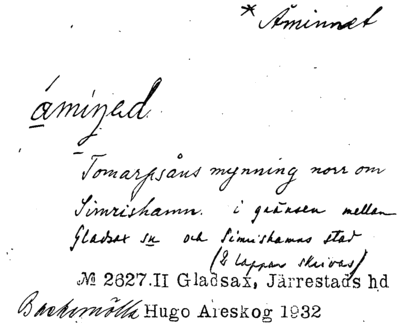 * Åminnet
åmiŋəd.
Tomarpsåns mynning norr om
Simrishamn. i gränsen mellan
Gladsax sn och Simrishamns stad
(2 lappar skrivas)
№ 2627.II Gladsax, Järrestads hd
Backamölla Hugo Areskog 1932